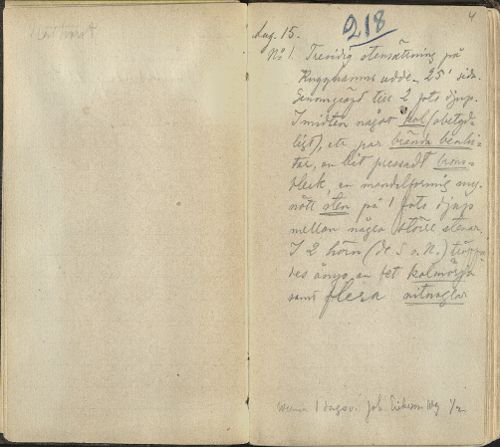 218
4
Aug. 15.
No 1. Tresidig stensättning på
udde. 25' sida.
Genomgräfd till 2 fots djup.
I midten något kol (obetyd-
ligt), ett par brända benbi-
tar, en bit pressadt brons-
bleck, en mandelformig
nött sten på 1 fots djup
mellan några större stenar.
I 2 hörn (de S o. N.) träffa-
des ånyo en fet kolmörja
samt flera nitnaglar
1 dagsv. Joh. 1/2